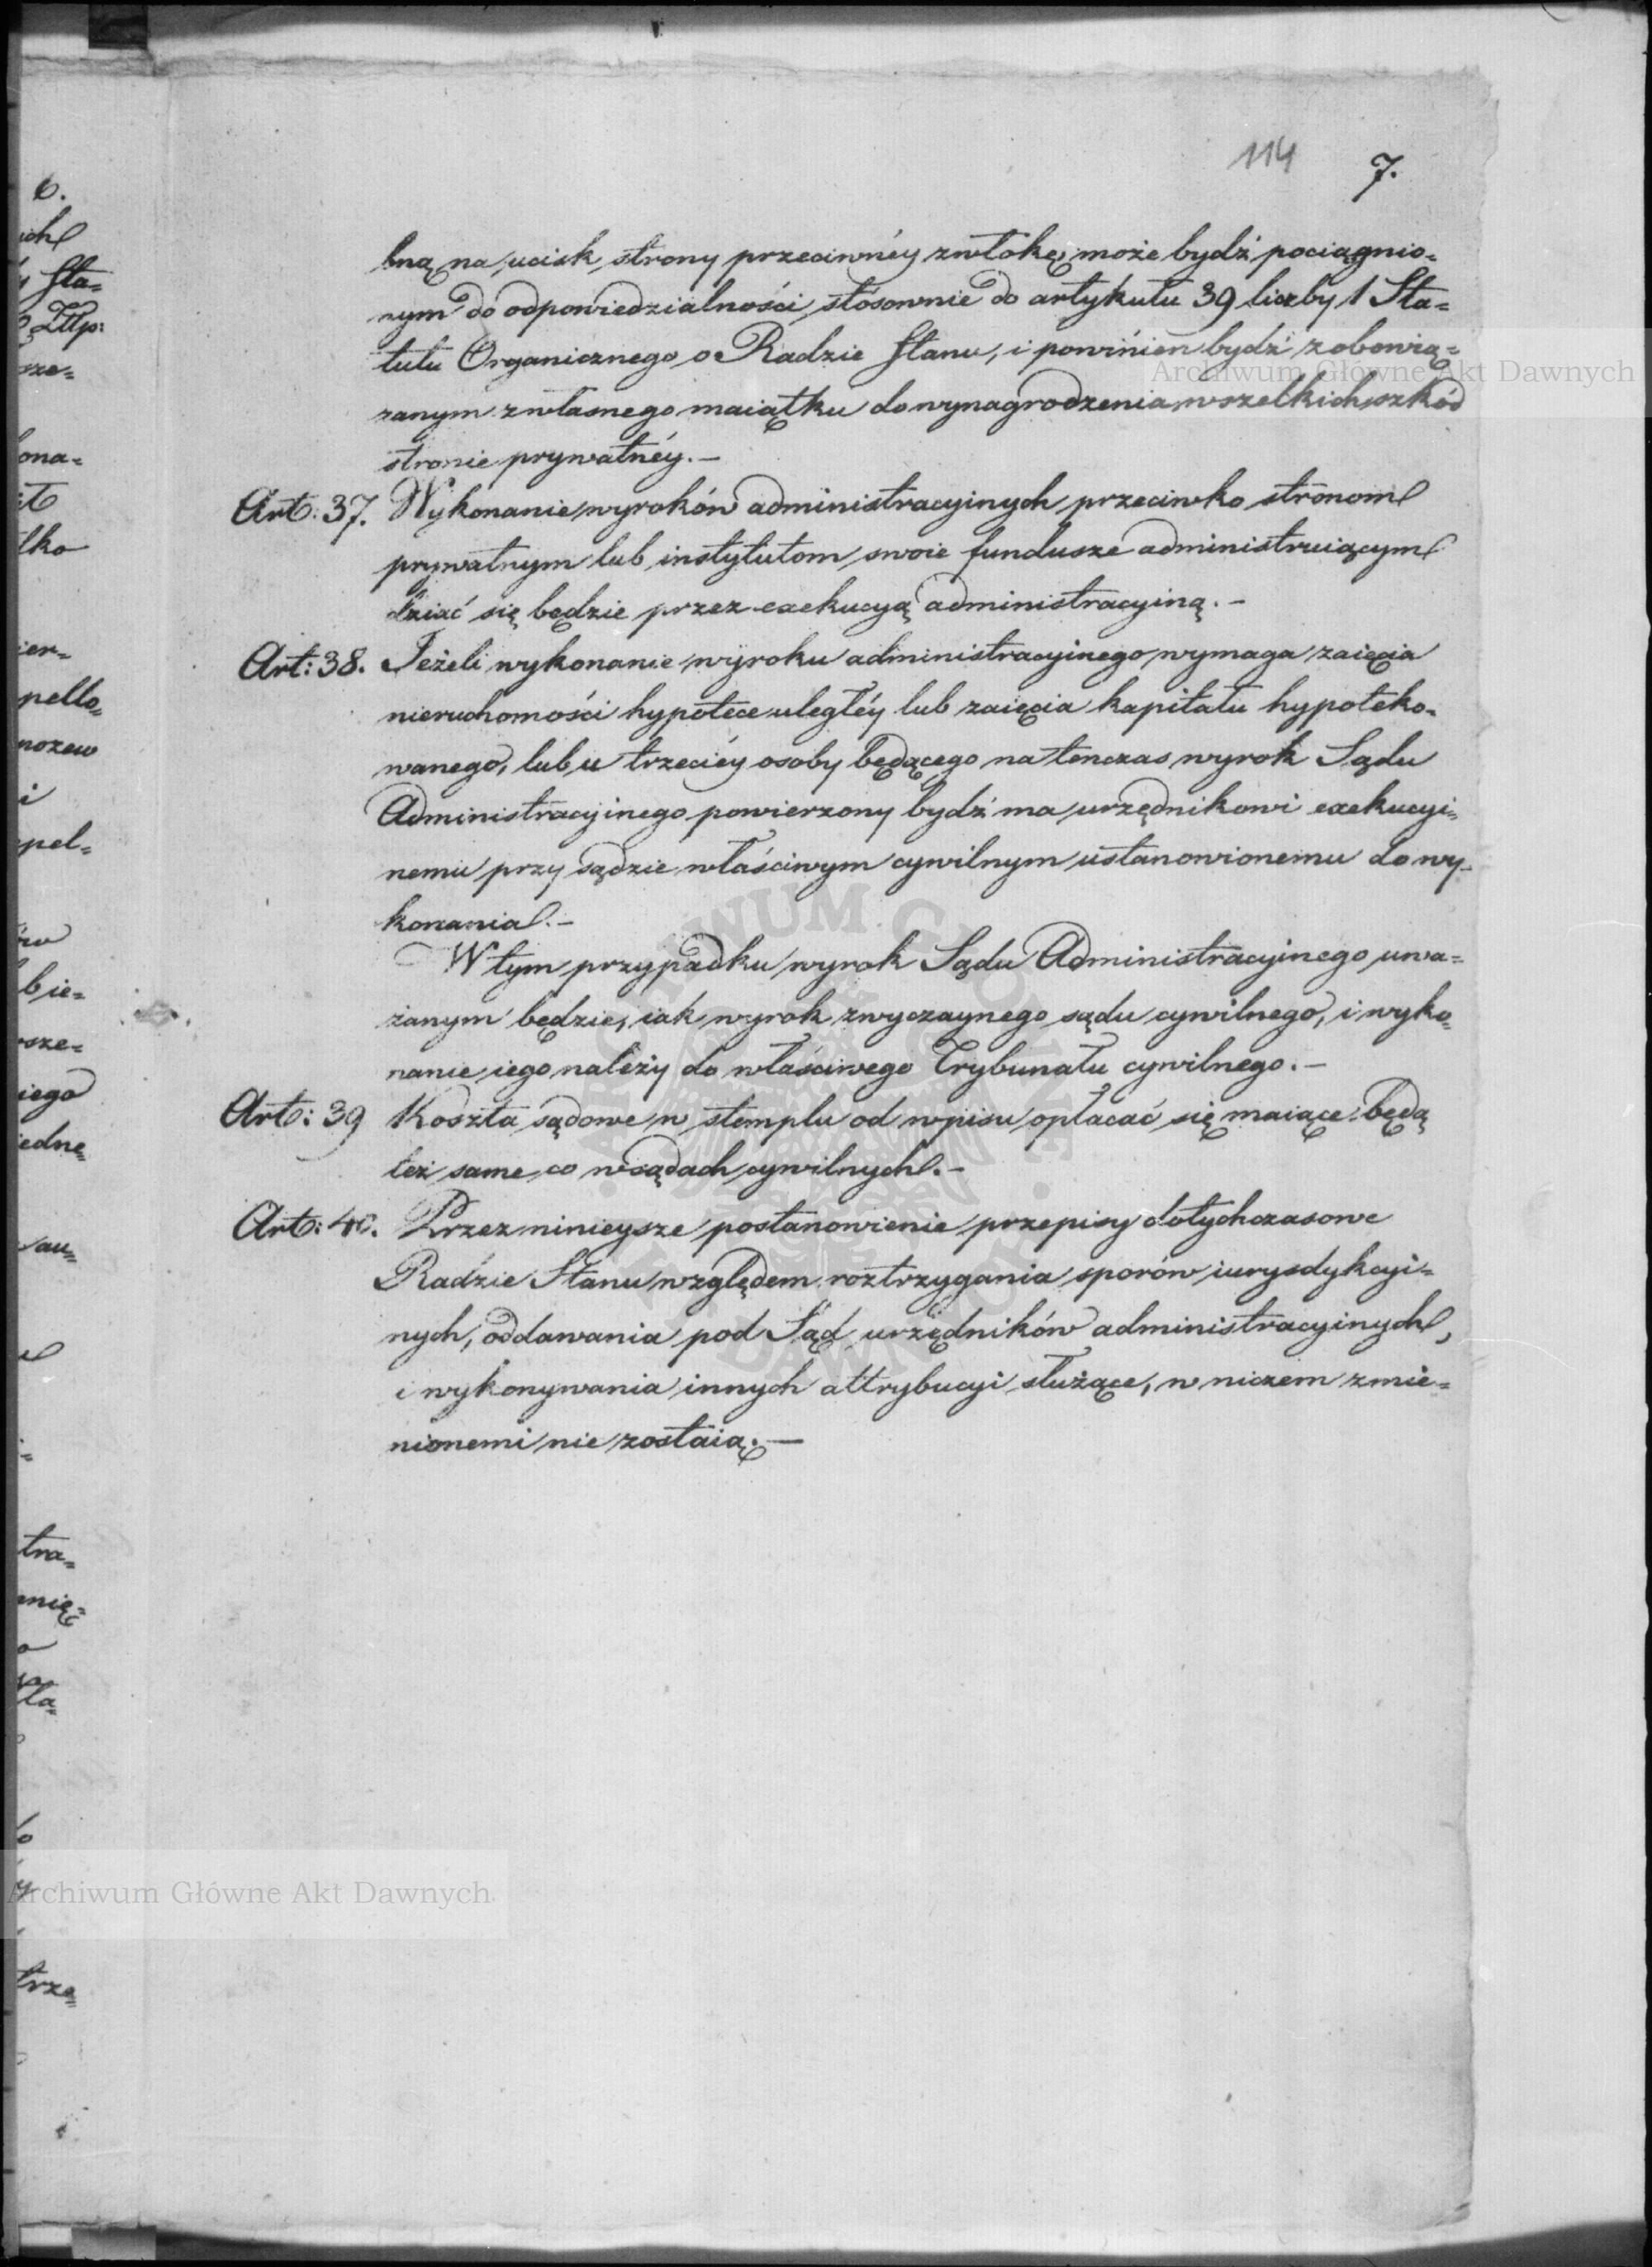 114 7.
lną na ucisk strony przeciwnéy zwłokę, może bydź pociągnio=
nym do odpowiedzialności stósownie do artykułu 39 liczby 1 Sta=
tutu Organicznego o Radzie Stanu, i powinien bydź zobowią=
zanym z własnego maiątku do wynagrodzenia wszelkich szkód
stronie prywatnéy. —
Art: 37. Wykonanie wyroków administracyinych przeciwko stronom
prywatnym lub instytutom swoie fundusze administruiącym
dziać się będzie przez exekucyą administracyiną. —
Art: 38. Jeżeli wykonanie wyroku administracyinego wymaga zaięcia
nieruchomości hypotece uległéy lub zaięcia kapitału hypoteko=
wanego, lub u trzeciéy osoby będącego na tenczas wyrok Sądu
Administracyinego powierzony bydź ma urzędnikowi exekucyi=
nemu przy sądzie właściwym cywilnym ustanowionemu do wy=
konania. —
W tym przypadku wyrok Sądu Administracyinego uwa=
żanym będzie, iak wyrok zwyczaynego sądu cywilnego, i wyko=
nanie iego należy do właściwego Trybunału cywilnego. —
Art: 39 Koszta sądowe w stemplu od wpisu opłacać się maiące będą
też same co w sądach cywilnych. —
Art: 40. Przez ninieysze postanowienie przepisy dotychczasowe
Radzie Stanu względem roztrzygania sporów iurysdykcyi=
nych, oddawania pod Sąd urzędników administracyinych,
i wykonywania innych attrybucyi służące, w niczem zmie=
nionemi nie zostaią. —
Archiwum Główne Akt Dawnych
Archiwum Główne Akt Dawnych